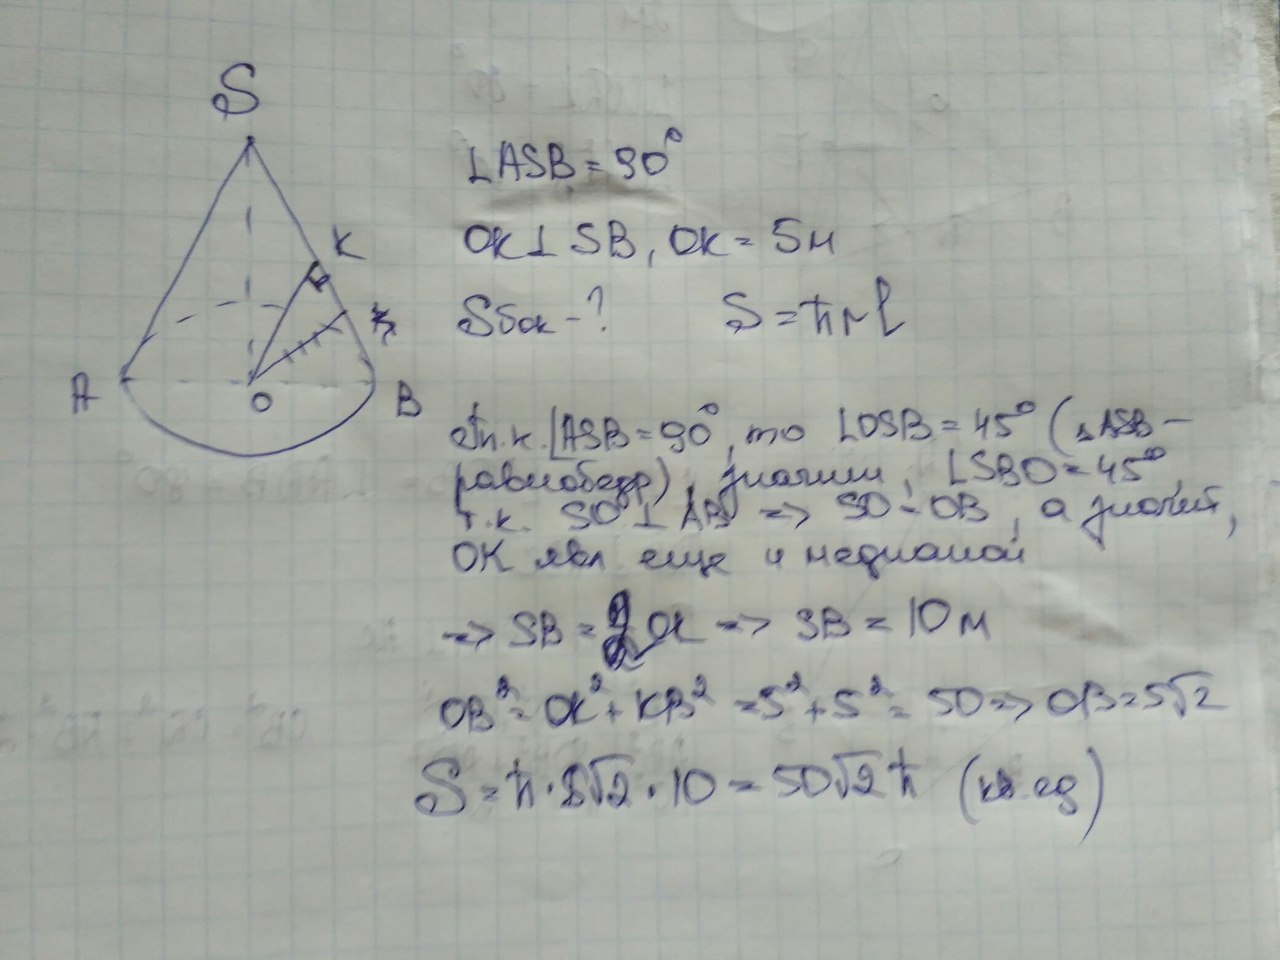 S
K
A
O
B
∠ASB = 90°
OK ⊥ SB, OK = 5м
Sбок - ? S = πrl
Т.к. ∠ASB = 90°, то ∠OSB = 45° (△ASB -
равнобедр), значит, ∠SBO = 45°,
т.к. SO ⊥ AB => SO = OB, а значит,
OK явл. еще и медианой
=> SB = 2OK => SB = 10м
OB² = OK² + KB² = 5² + 5² = 50 => OB = 5√2
S = π · 5√2 · 10 = 50√2 π (кв. ед)